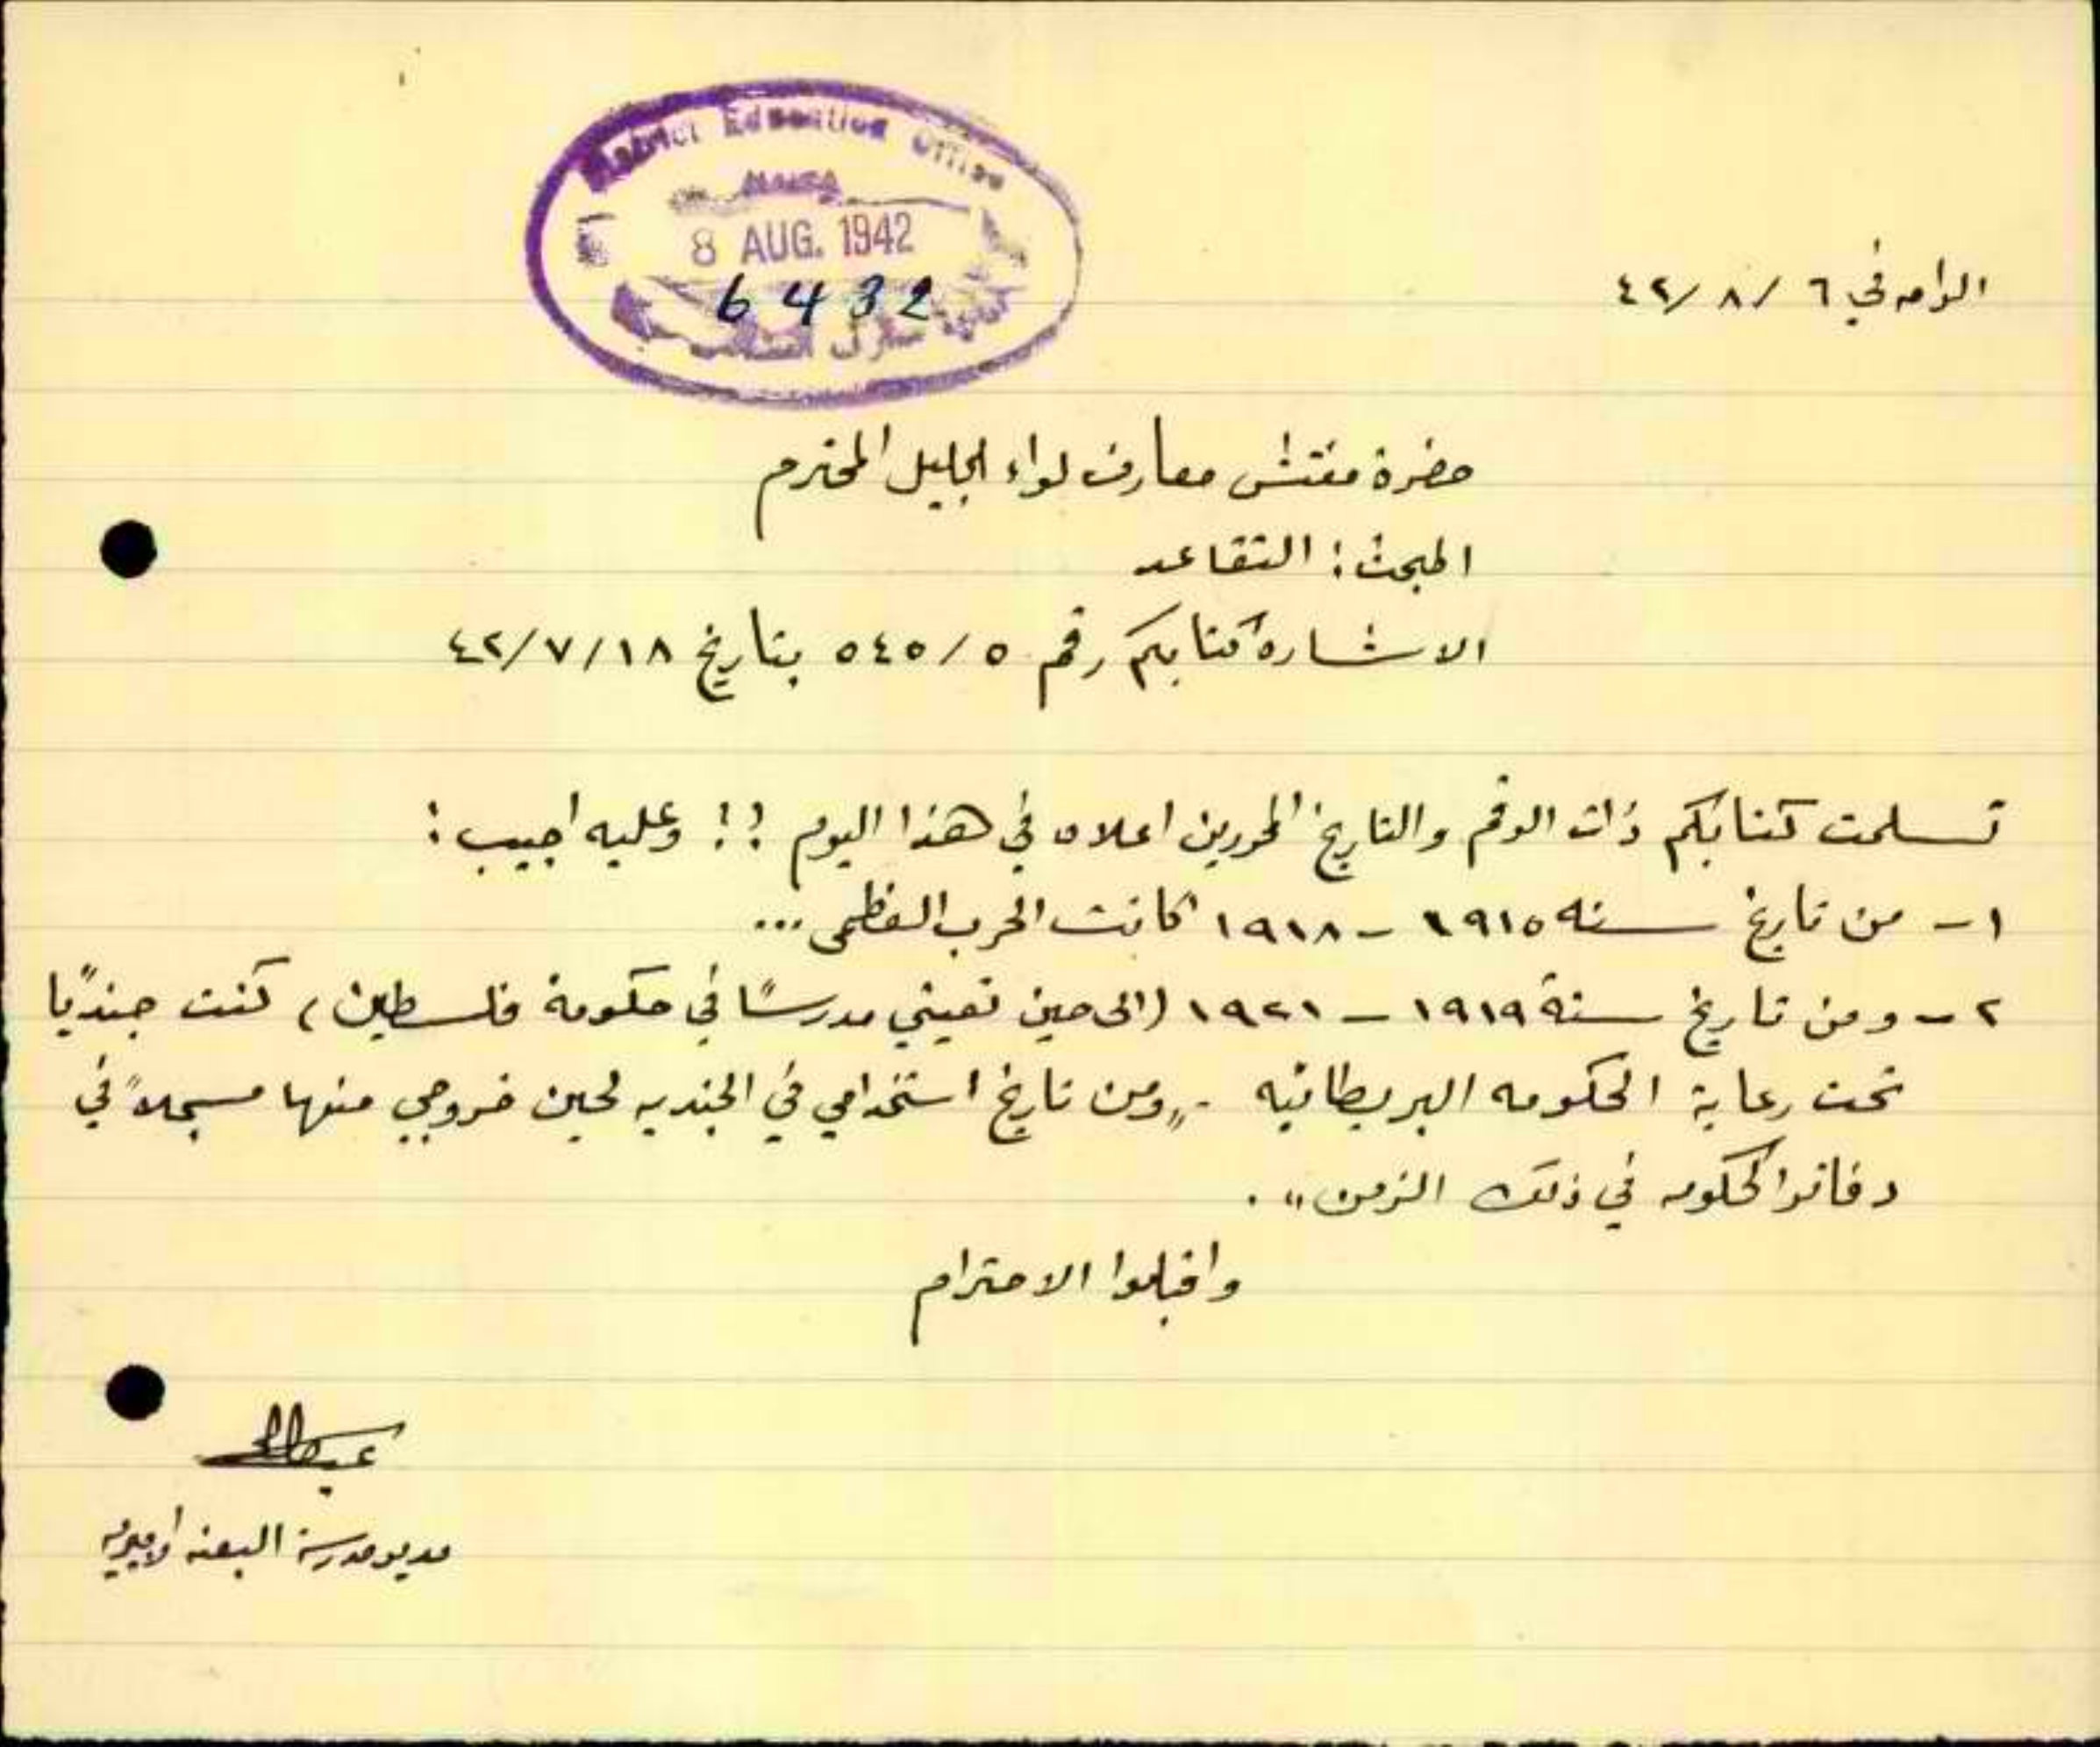 District Education Office
8 AUG. 1942
6432
الرامه في ٦ / ٨ / ٤٢
حضرة مفتش معارف لواء الجليل المحترم
المبحث : التقاعد
الاشارة كتابكم رقم ٥ / ٥٤٥ بتاريخ ١٨ / ٧ / ٤٢
تسلمت كتابكم ذات الرقم والتاريخ المحررين اعلاه في هذا اليوم !! وعليه اجيب :
١ - من تاريخ سنه ١٩١٥ - ١٩١٨ كانت الحرب العظمى ...
٢ - ومن تاريخ سنة ١٩١٩ - ١٩٢١ (الى حين تعييني مدرسًا في حكومة فلسطين) كنت جنديًا
تحت رعاية الحكومه البريطانيه - "ومن تاريخ استخدامي في الجنديه لحين خروجي منها مسجلاً في
دفاتر الحكومه في ذلك الزمن" .
واقبلوا الاحترام
مدير مدرسة البعنه الاميريه